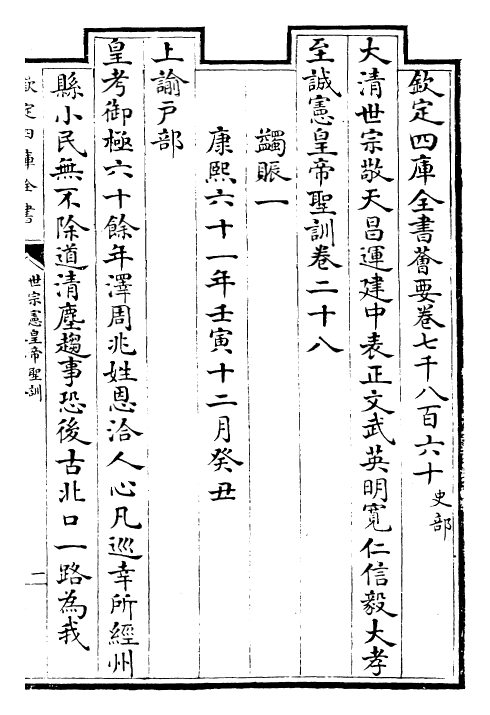 欽定四庫全書薈要卷七千八百六十 史部
大清世宗敬天昌運建中表正文武英明寬仁信毅大孝
至誠憲皇帝聖訓卷二十八
蠲賑一
康熙六十一年壬寅十二月癸丑
上諭戶部
皇考御極六十餘年澤周兆姓恩洽人心凡巡幸所經州
縣小民無不除道清塵趨事恐後古北口一路為我
欽定四庫全書
世宗憲皇帝聖訓